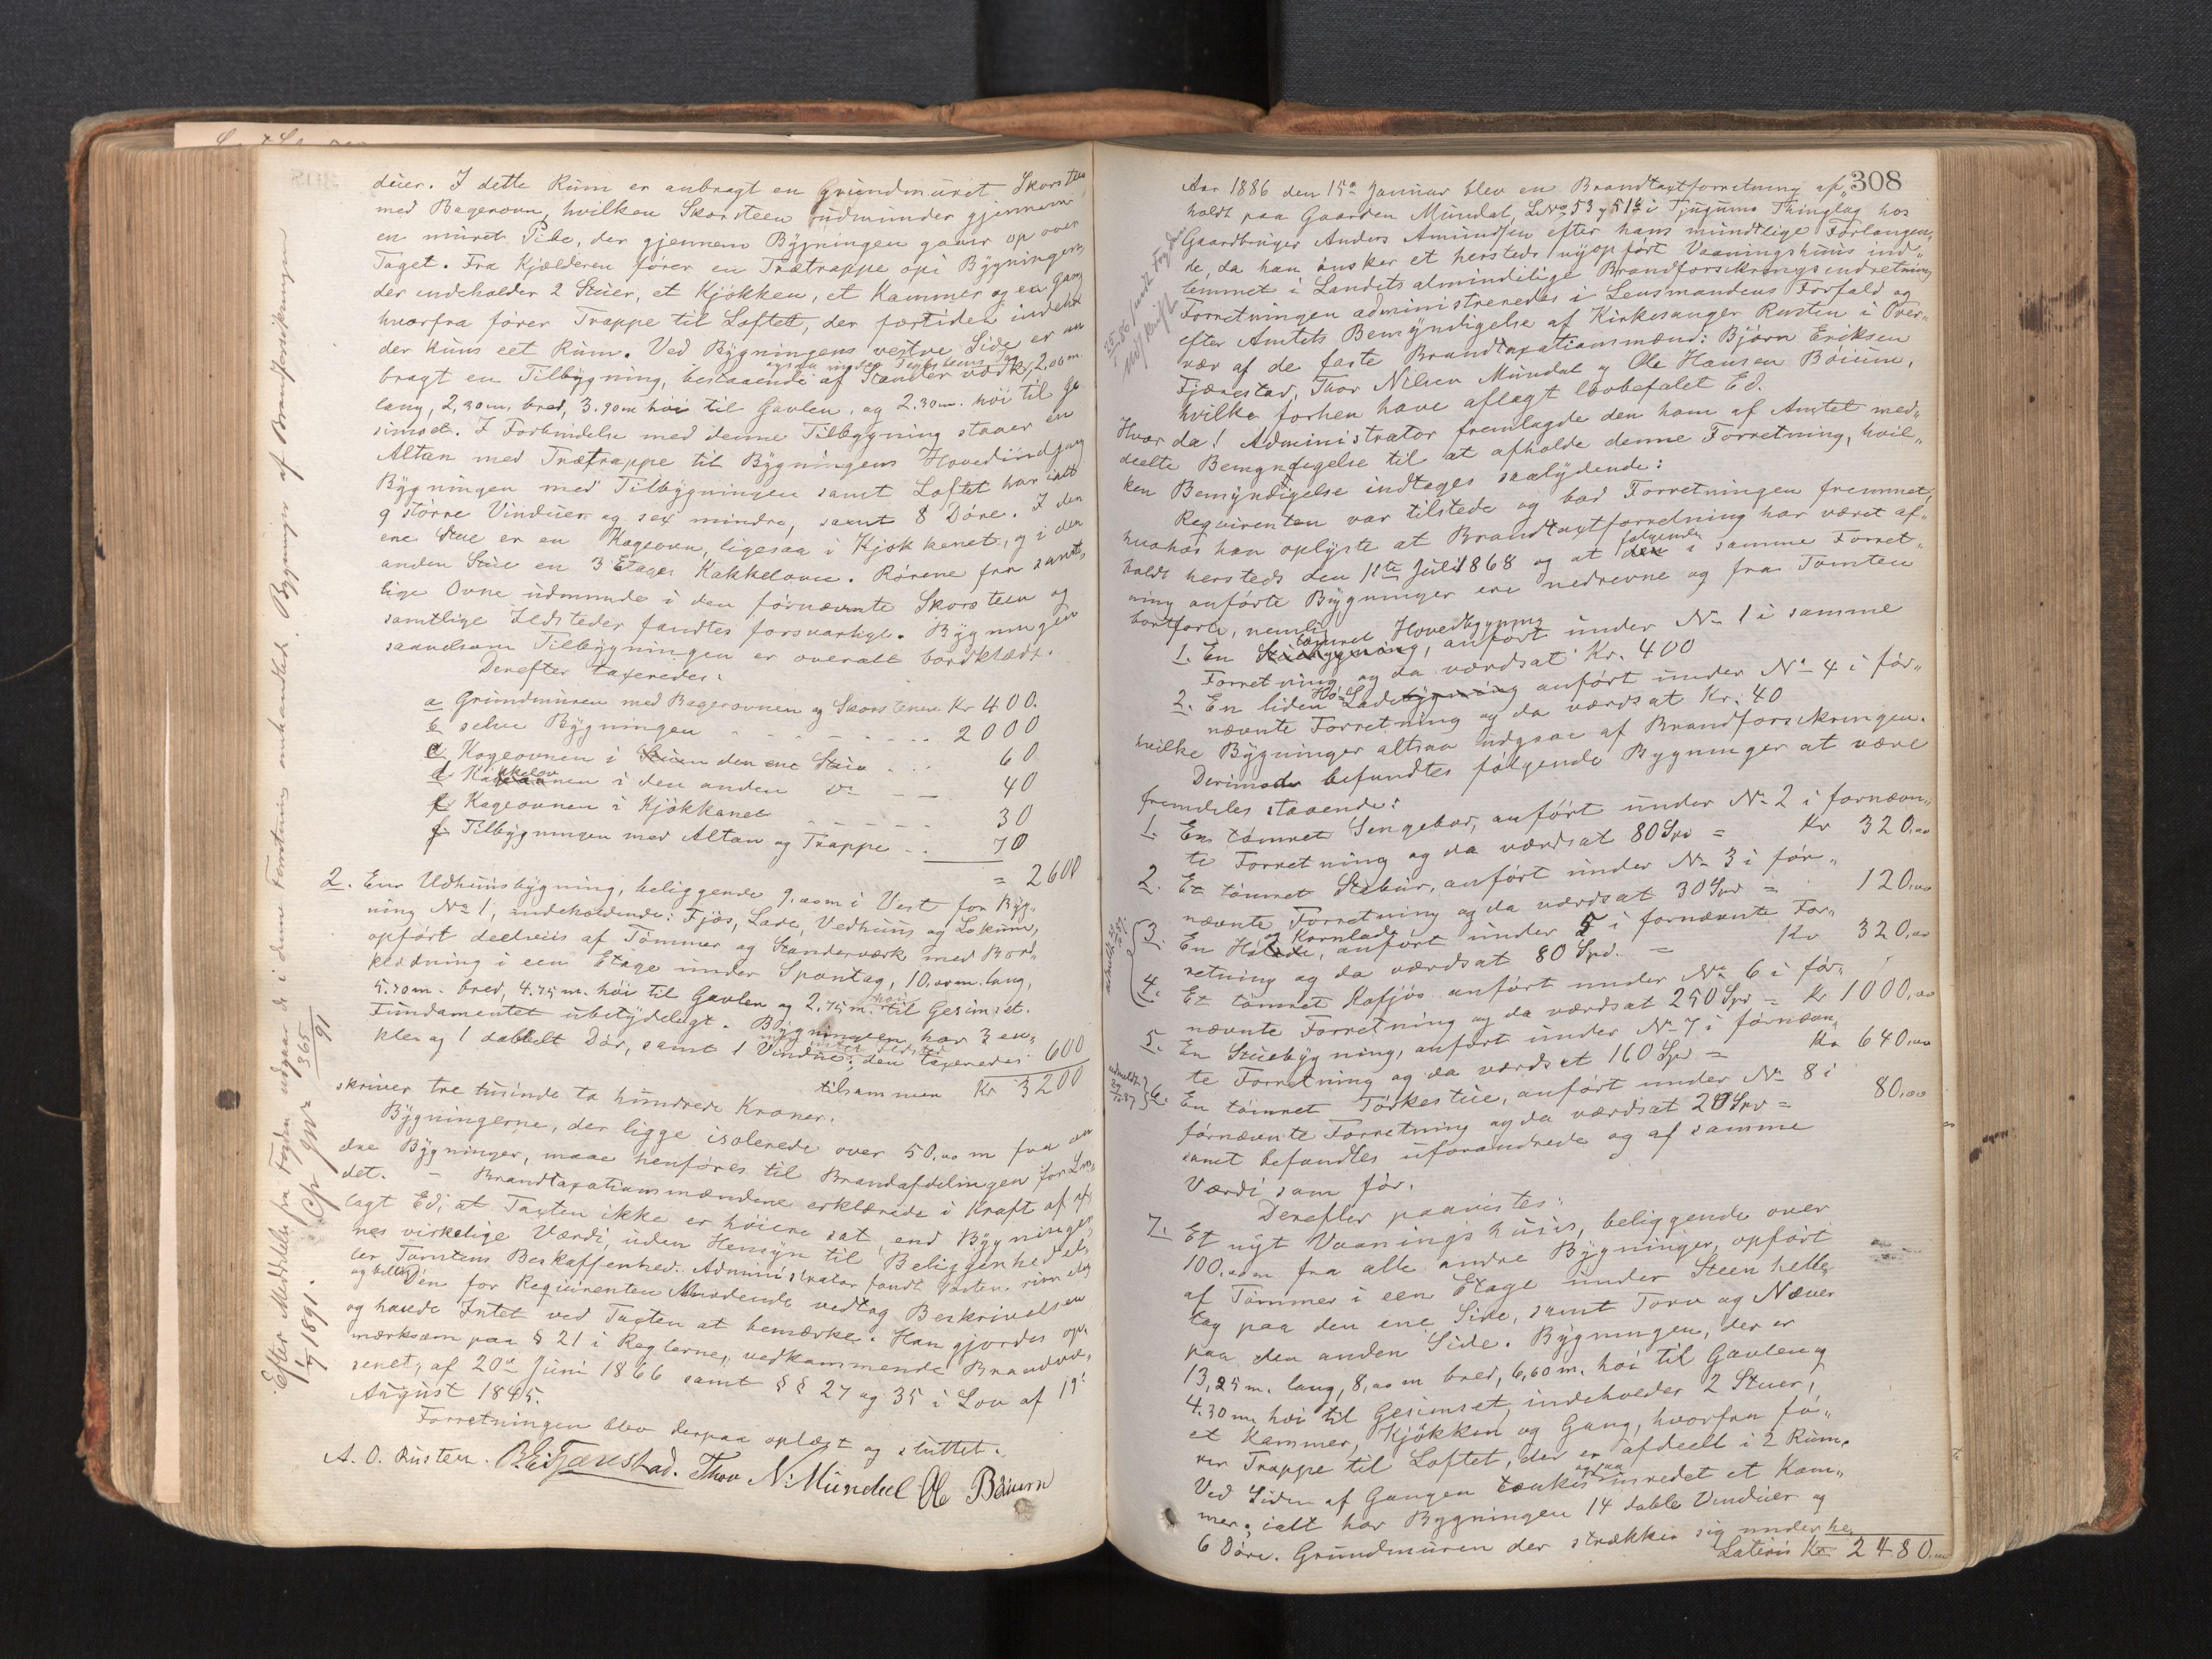 duer. I dette Rum er anbragt en Grundmuret Skorsten
med Bagerovn, hvilken Skorsteen udmunder gjennem
en muret Pibe, der gjennem Bygningen gaaer op over
Taget. Fra Kjælderen fører en Trætrappe op i Bygningen,
der indeholder 2 Stuer, et Kjøkken, et Kammer og en Gang
hvorfra fører Trappe til Loftet, der fortiden indehol
der kuns eet Rum. Ved Bygningens vestre Side er an
bragt en Tilbygning, bestaaende af Stænder værk, 2,00 m.
ogsaa under
lang, 2,30 m. bred, 3.90 m høi til Gavlen, og 2.30 m. høi til Ge
simset. I Forbindelse med denne Tilbygning staaer en
Altan med Trætrappe til Bygningens Hovedindgang
Bygningen med Tilbygningen samt Loftet har ialt
9 større Vinduer og sex mindre, samt 8 Døre. I den
ene Stue er en Kageovn, ligesaa i Kjøkkenet, og i den
anden Stue en 3 Etages Kakkelovn. Rørene fra samt,
lige Ovne udmunde i den førnævnte Skorsteen og
samtlige Ildsteder fandtes forsvarlige. Bygningen
saavelsom Tilbygningen er overalt bordklædt.
Derefter taxeredes:
a Grundmuren med Bagerovnen og Skorstenen Kr 400.
b selve Bygningen 2000
c Kogeovnen i den ene Stue 60
d Kakkelovnen i den anden do 40
e Kogeovnen i Kjøkkenet 30
f Tilbygningen med Altan og Trappe 70
= 2600
2. En Udhuusbygning, beliggende 9.00 m i Vest for Byg,,
ning No 1, indeholdende: Fjøs, Lade, Vedhuus og Lokum,
opført deelviis af Tømmer og Stænderværk med Bord,,
klædning i een Etage under Spontag, 10,00 m. lang,
5.70 m. bred, 4.75 m. høi til Gavlen og 2,75 m. høi til Gesimset.
Fundamentet ubetydeligt. Bygningen har 3 en,,
kle og 1 dobbelt Dør, samt 1 Vindue; den taxeredes 600
tilsammen Kr 3200
skriver tre tusinde to hundrede Kroner.
Bygningerne, der ligge isolerede over 50,00 m fra an
dre Bygninger, maae henføres til Brandafdelingen for Lan
det. - Brandtaxationsmændene erklærede i Kraft af af
lagt Ed, at Taxten ikke er høiere sat, end Bygninger,
nes virkelige Værdi, uden Hensyn til Beliggenhed el,
ler Tomtens Beskaffenhed. Administrator fandt Taxten rimelig
og billig. Den for Requirenten Mødende vedtog Beskrivelsen
og havde Intet ved Taxten at bemærke. Han gjordes op,
mærksom paa § 21 i Reglerne, vedkommende Brandvæ,,
senet, af 20de Juni 1866 samt §§ 27 og 35 i Lov af 19'
August 1845.
Forretningen blev derpaa oplæst og sluttet.
A. O. Rusten. B. E. Fjærestad. Thor N. Mundal Ole Bøium
Efter Meddelelse fra Fogden udgaar de i denne Forretning omhandlede Bygninger af Brandforsikringen
1/7 1891.
365
91
308
Aar 1886 den 15de Januar blev en Brandtaxtforretning af,,
holdt paa Gaarden Mundal, L.No 53 og 51b i Tjugums Thinglag hos
Gaardbruger Anders Amundsen efter hans mundtlige Forlangen,
de, da han ønsker et hersteds nyopført Vaaningshuus ind,,
lemmet i Landets almindelige Brandforsikringsindretning
Forretningen administreredes i Lensmandens Forfald og
efter Amtets Bemyndigelse af Kirkesanger Rusten i Over,,
vær af de faste Brandtaxationsmænd: Bjørn Eriksen
Fjærestad, Thor Nilsen Mundal og Ole Hansen Bøium,
hvilke forhen have aflagt lovbefalet Ed.
Hvor da! Administrator fremlagde den ham af Amtet med,,
deelte Bemyndigelse til at afholde denne Forretning, hvil,,
ken Bemyndigelse indtages saalydende:
Reqvirenten var tilstede og bad Forretningen fremmet,
hvorhos han oplyste at Brandtaxtforretning har været af,,
holdt hersteds den 11te Juli 1868 og at følgende i samme Forret,,
ning anførte Bygninger ere nedrevne og fra Tomten
bortførte, nemlig
1. En tømret Hovedbygning, anført under No 1 i samme
Forretning og da værdsat Kr. 400
2. En liden Hø-Lade anført under No 4 i før,,
nævnte Forretning og da værdsat Kr. 40
hvilke Bygninger altsaa udgaae af Brandforsikringen.
Derimod befandtes følgende Bygninger at være
fremdeles staaende:
1. En tømret Sengebod, anført under No 2 i fornævn,,
te Forretning og da værdsat 80 Spd = Kr 320,00
2. Et tømret Stabur, anført under No 3 i før,,
nævnte Forretning og da værdsat 30 Spd = 120,00
3. En Hø og Kornlade, anført under 5 i fornævnte For,,
retning og da værdsat 80 Spd. = Kr 320,00
4. Et tømret Kofjøs anført under No 6 i før,,
nævnte Forretning og da værdsat 250 Spd = Kr 1000,00
5. En Stuebygning, anført under No 7 i førnævn,
te Forretning og da værdsat 160 Spd = Kr 640,00
6. En tømret Tørkestue, anført under No 8 i
førnævnte Forretning og da værdsat 20 Spd = 80,00
samt befandtes uforandrede og af samme
Værdi som før.
Derefter paavistes:
7. Et nyt Vaaningshuus, beliggende over
100,00 m fra alle andre Bygninger, opført
af Tømmer i een Etage under Steenhelle,
tag paa den ene Side, samt Torv og Næver
paa den anden Side. Bygningen, der er
13,25 m. lang, 8,00 m bred, 6,60 m. høi til Gavlen og
4.30 m høi til Gesimset, indeholder 2 Stuer,
et Kammer, Kjøkken og Gang, hvorfra fø,,
rer Trappe til Loftet, der er afdeelt i 2 Rum.
Ved Siden af Gangen tænkes ogsaa inredet et Kam,,
mer; ialt har Bygningen 14 doble Vinduer og
6 Døre. Grundmuren der strækker sig under he,
Lateris Kr 2480,00